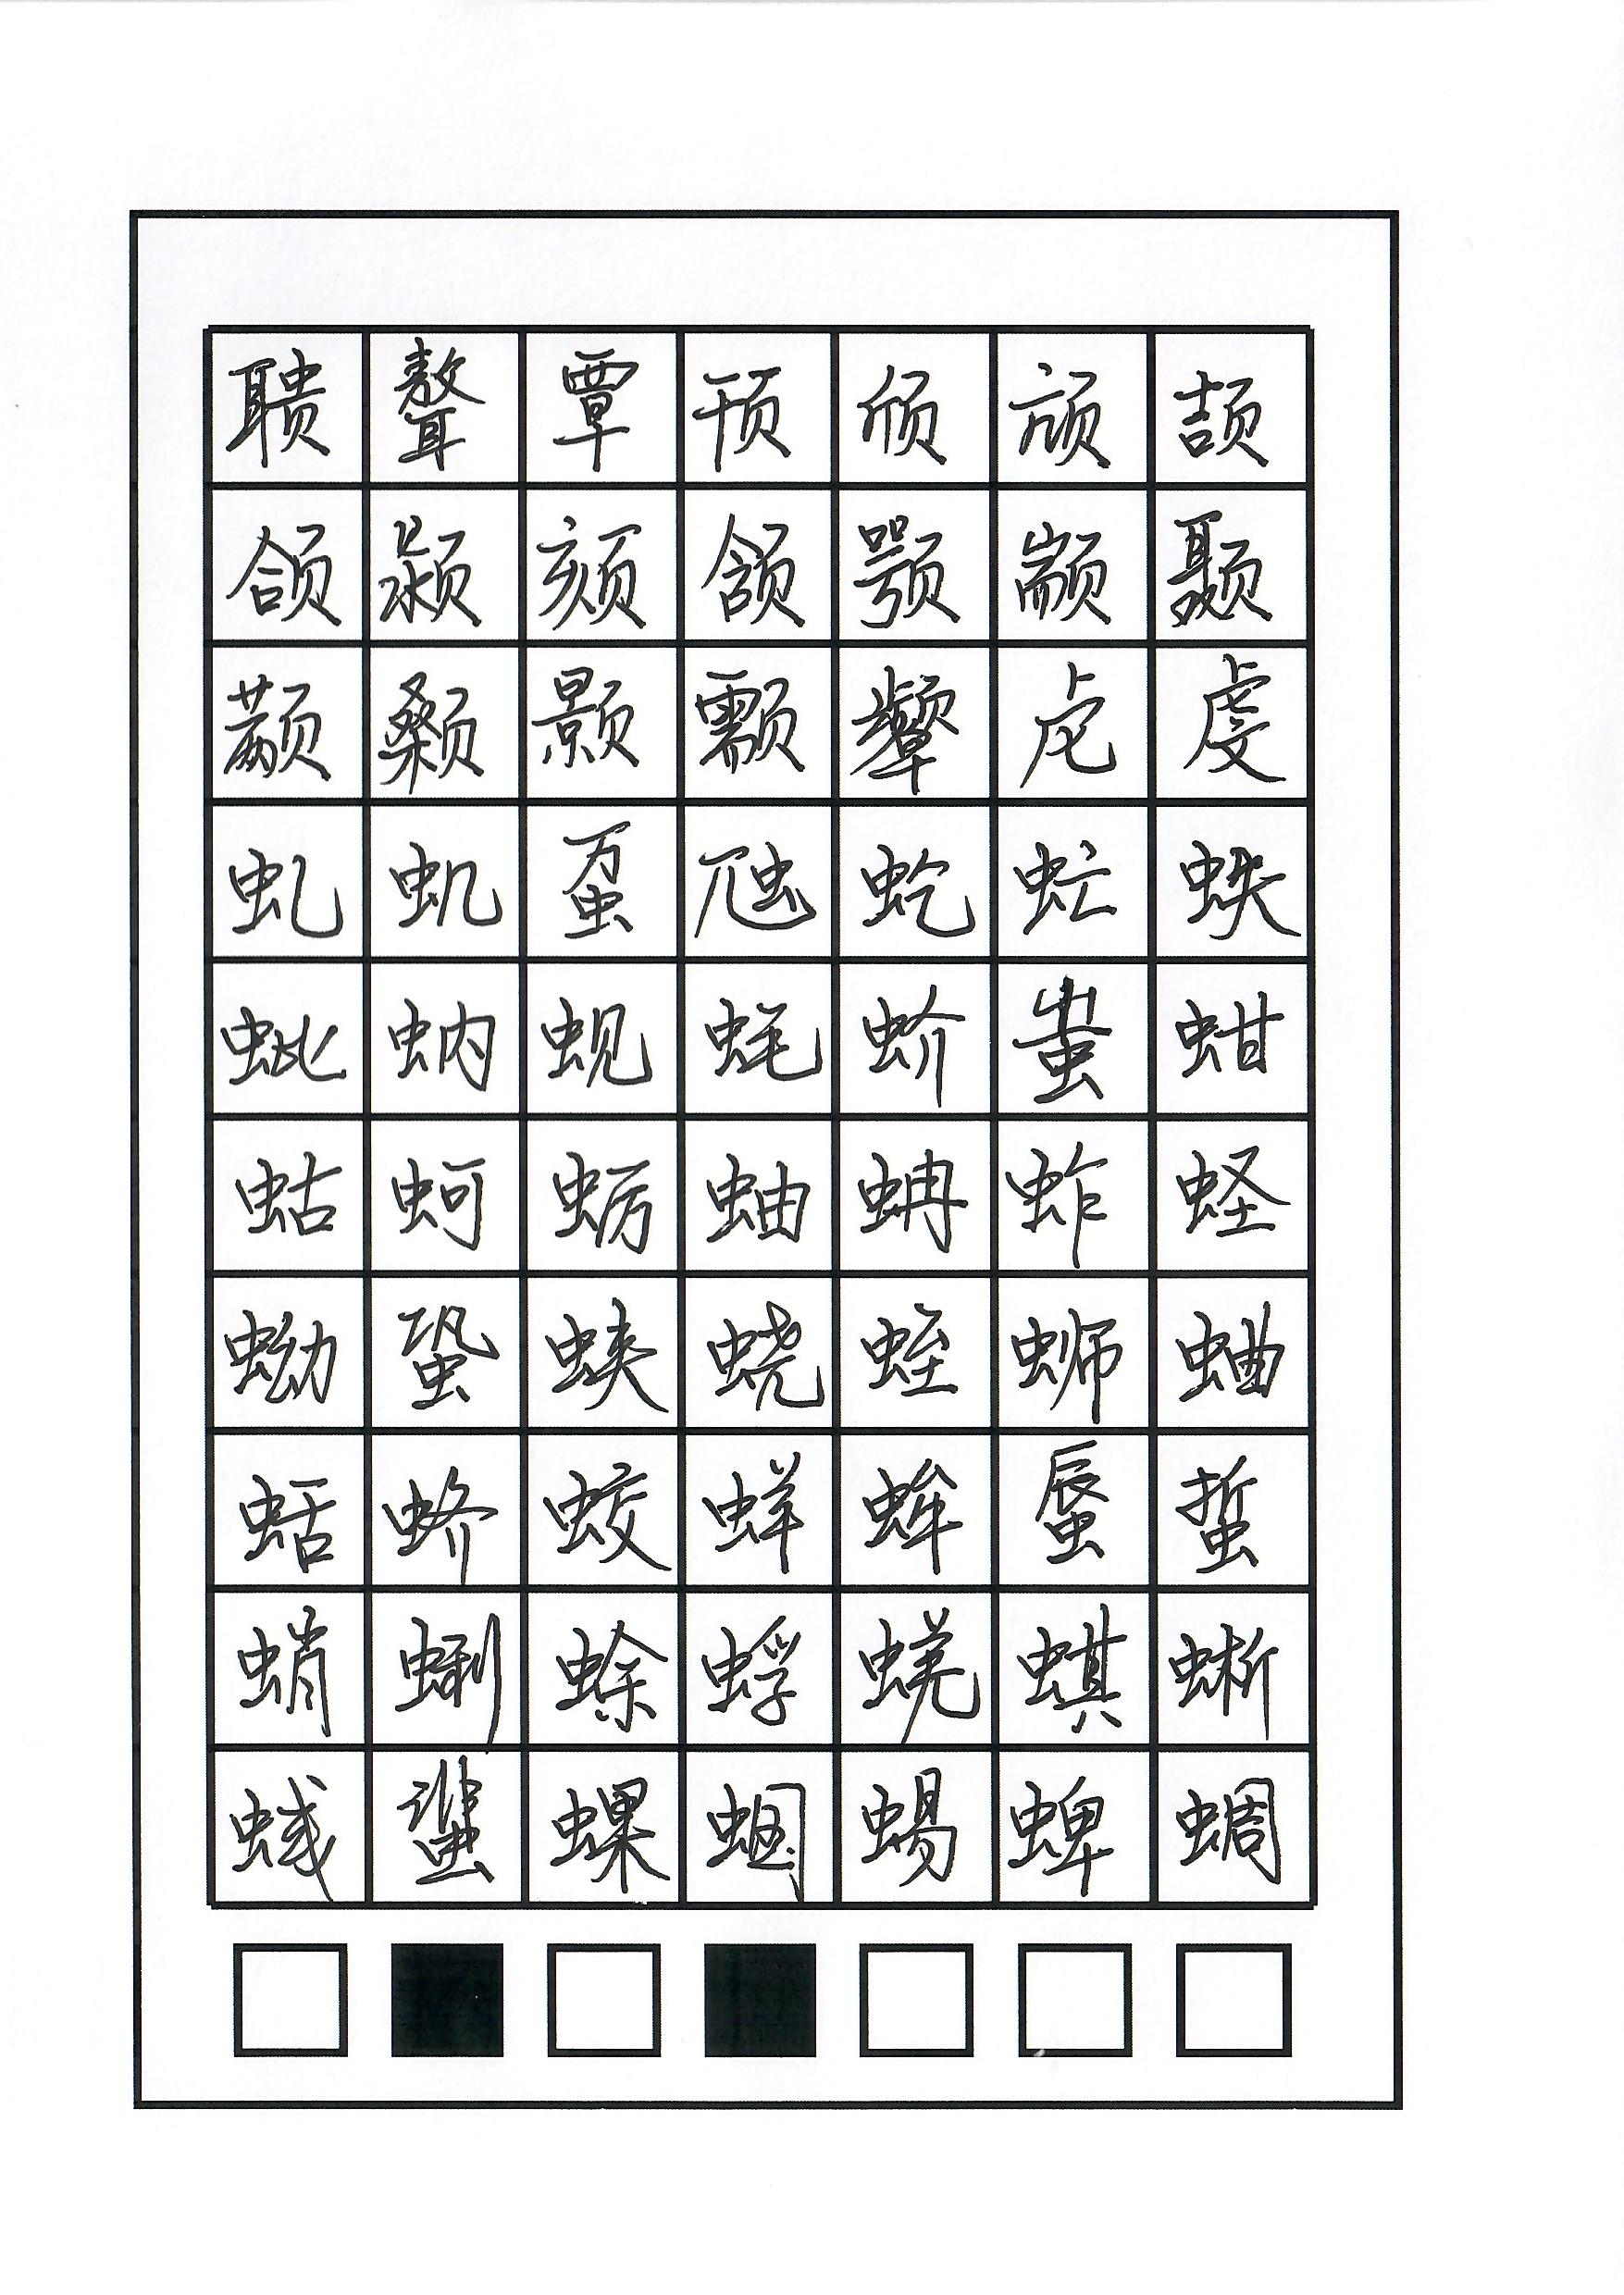 聩聱覃顸颀颃颉
颌颍颏颔颚颛颞
颟颡颢颥颦虍虔
虬虮虿虺虼虻蚨
蚍蚋蚬蚝蚧蚩蚶
蛄蚵蛎蚰蚺蚱蛏
蚴蛩蛱蛲蛭蛳蛐
蛞蛴蛟蛘蛑蜃蜇
蛸蜊蜍蜉蜣蜞蜥
蜮蜚蜾蝈蜴蜱蜩